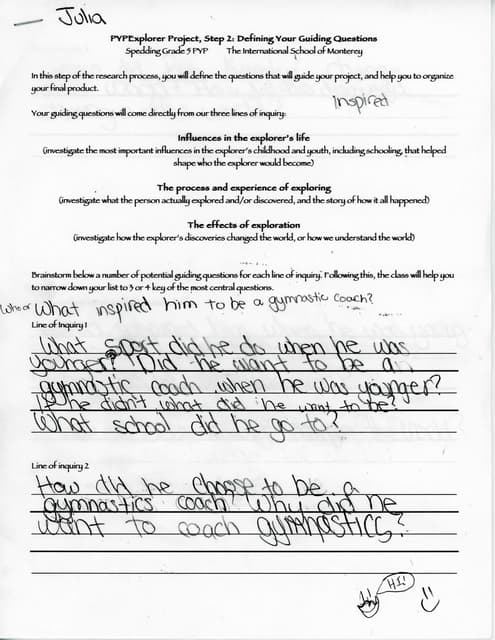 Julia
PYP Explorer Project, Step 2: Defining Your Guiding Questions
Spedding Grade 5 PYP The International School of Monterey
In this step of the research process, you will define the questions that will guide your project, and help you to organize
your final product.
Inspired
Your guiding questions will come directly from our three lines of inquiry:
Influences in the explorer's life
(investigate the most important influences in the explorer's childhood and youth, including schooling, that helped
shape who the explorer would become)
The process and experience of exploring
(investigate what the person actually explored and/or discovered, and the story of how it all happened)
The effects of exploration
(investigate how the explorer's discoveries changed the world, or how we understand the world)
Brainstorm below a number of potential guiding questions for each line of inquiry. Following this, the class will help you
to narrow down your list to 3 or 4 key of the most central questions.
Who or What inspired him to be a gymnastic coach?
Line of Inquiry 1
What sport did he do when he was
younger? Did he want to be a
gymnastic coach when he was younger?
If he didn't what did he want to be?
What school did he go to?
Line of inquiry 2
How did he choose to be a
gymnastics coach? Why did he
want to coach gymnastics?
HI!